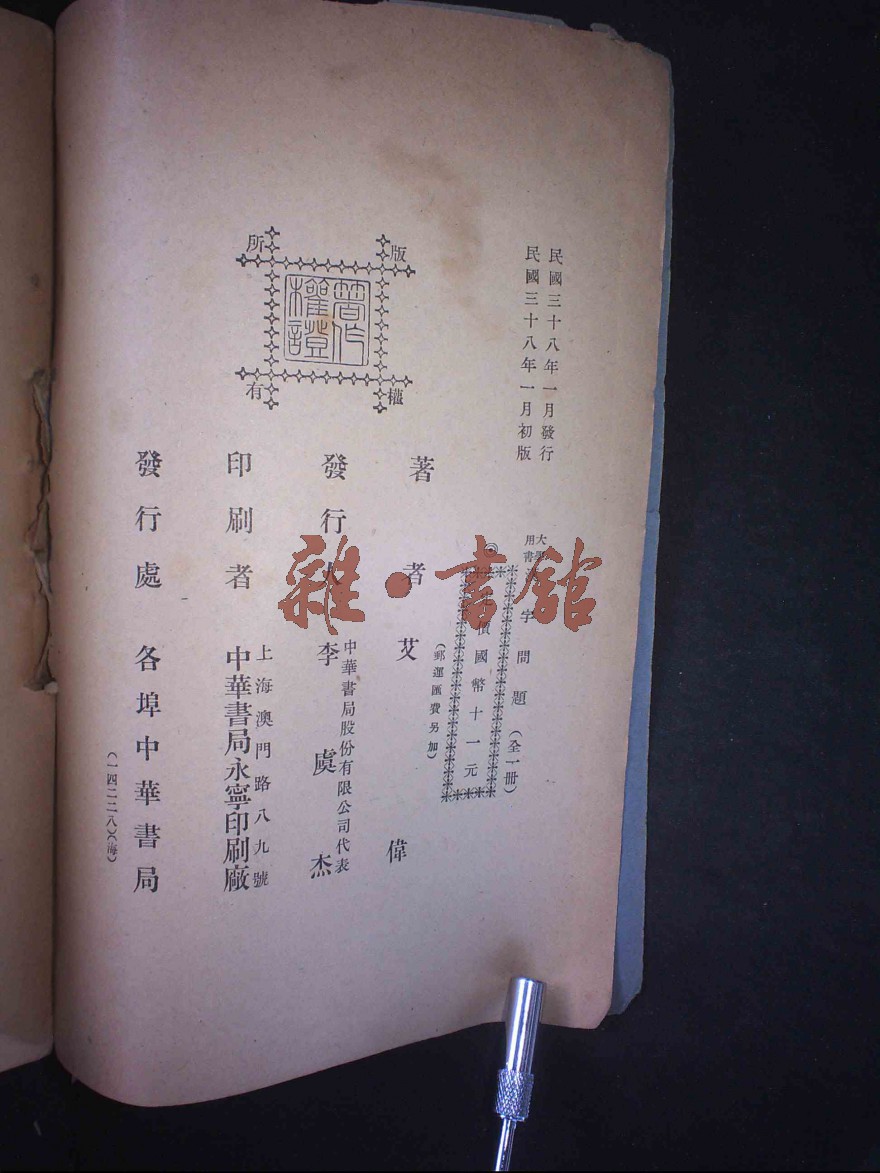 民國三十八年一月發行
民國三十八年一月初版
大學用書
字問題（全一冊）
價國幣十一元
（郵運匯費另加）
著者 艾偉
發行人 李虞杰
中華書局股份有限公司代表
印刷者 中華書局永寧印刷廠
上海澳門路八九號
發行處 各埠中華書局
（一四二二八）（海）
版權所有
著作權證
雜·書館